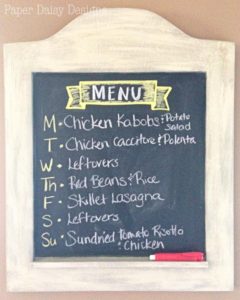 Paper Daisy Designs
MENU
M • Chicken Kabobs & Potato Salad
T • Chicken Cacciatore & Polenta
W • Leftovers
Th • Red Beans & Rice
F • Skillet Lasagna
S • Leftovers
Su • Sundried Tomato Risotto & Chicken